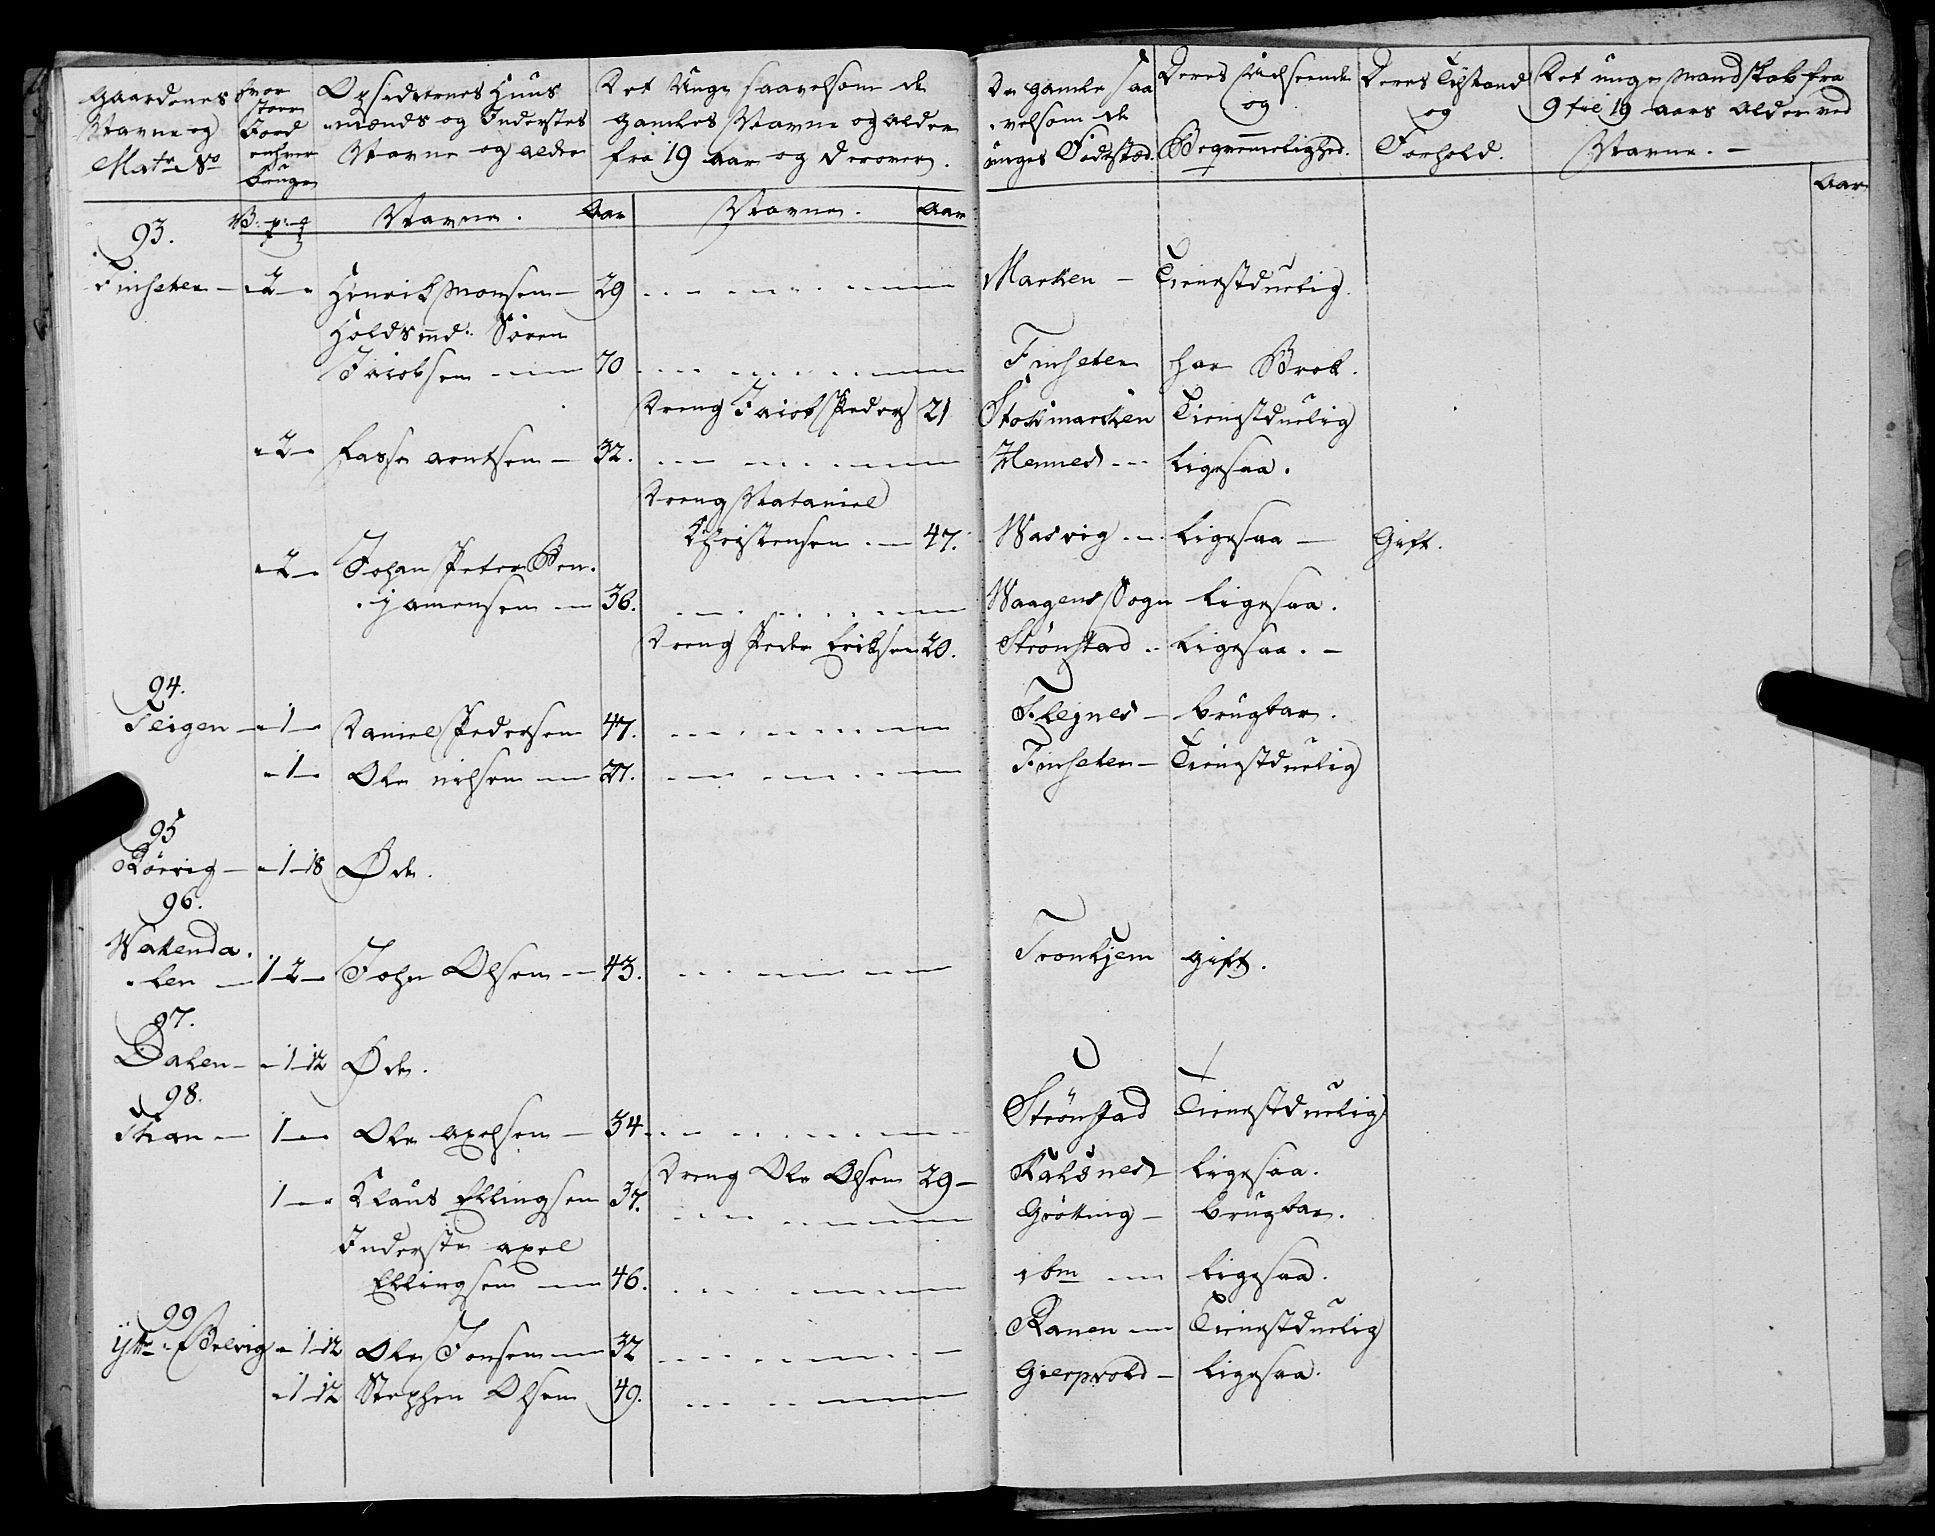 Gaardenes
Navne og
Matr No
Hvor
stor
Jord
enhver
bruger
Opsidernes Huus
mænds og Inderstes
Navne og alder
Det Unge saavelsom de
gamles Navne og alder
fra 19 aar og derover.
De gamle saa
velsom de
unges Fødested.
Deres Udseende
og
Beqvemmelighed.
Deres Tilstand
og
Forhold.
Det unge Mandskab fra
9 til 19 aars Alder ved
Navne. —
V. p. Navne. Aar Navne. Aar
Aar
93.
Finseten — 2 Henrich Monsen — 29 Marken — Tienestduelig.
Holdsmd. Sören
Jacobsen 70 Finseten har Brok.
Dreng Jacob Peders 21 Stokmarken Tienestduelig
2 Lasse arntsen — 32. Hennes Ligesaa.
Dreng Nataniel
Christensen 47. Wasvig Ligesaa — Gift.
2 Johan Peter Ben
jamensen 36. Waagens Sogn Ligesaa.
Dreng Peder Eriksen 20. Strönstad Ligesaa. —
94.
Teigen — 1 Daniel Pedersen 47. Flejnes — brugbar.
1 Ole nilsen 27. Finseten — Tienestduelig
95
Rörvig — 1 18 Øde.
96.
Watenda
len 1 2 John Olsen 43. Tronhjem gift.
97.
Dalen — 1 12 Øde.
98.
1 Ole axelsen — 34. Strönstad Tienestduelig
Dreng Ole Olsen 29 — Kalsnes Ligesaa.
1 Klaus Ellingsen 37. Gròtting — brugbar.
Inderste axel
Ellingsen 46. ibm Ligesaa.
99
1 12 Ole Jonsen 32 Ranen Tienestduelig
1 12 Stephen Olsen 49. Ligesaa.